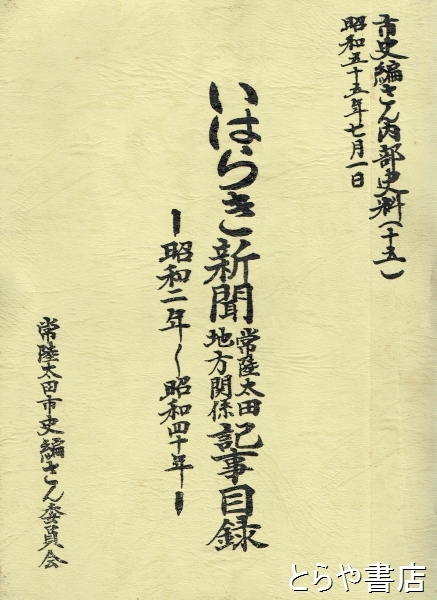 市史編さん内部史料(十五)
昭和五十五年七月一日
いはらき新聞常陸太田地方関係記事目録
ー昭和二年〜昭和四十年ー
常陸太田市史編さん委員会
とらや書店